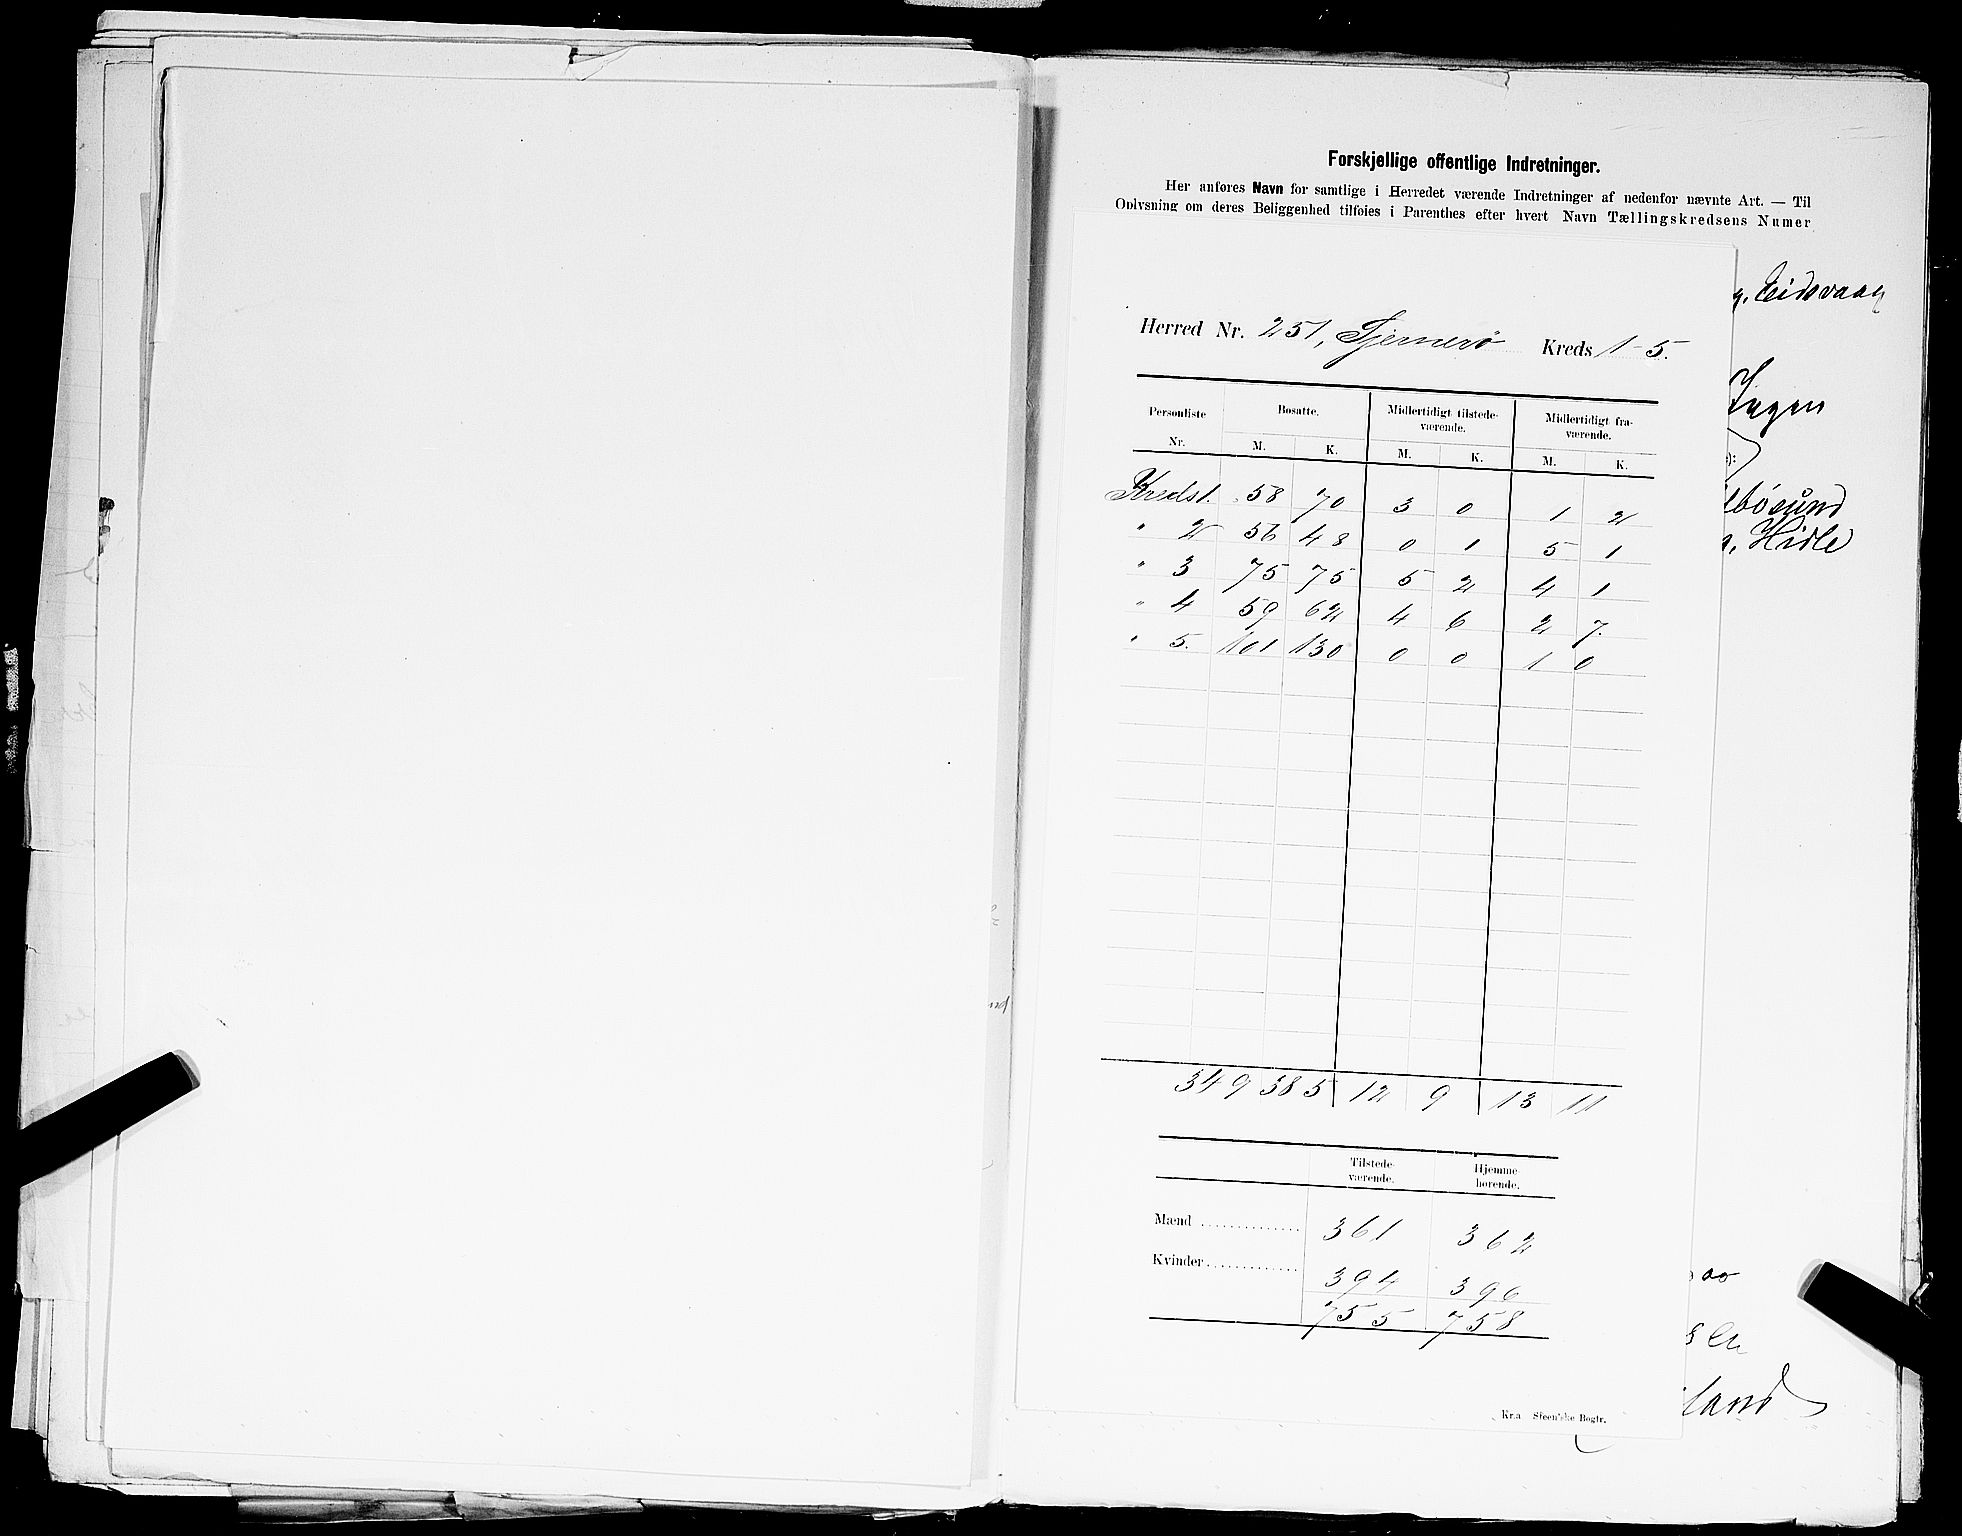 Forskjellige offentlige Indretninger.
Her anføres Navn for samtlige i Herredet værende Indretninger af nedenfor nævnte Art. — Til
Oplysning om deres Beliggenhed tilføies i Parenthes efter hvert Navn Tællingskredsens Numer
Eidsvaag
Herred Nr. 251, Fjernerö Kreds 1-5.
Ingen
Personliste Bosatte. Midlertidigt tilstede- Midlertidigt fra-
værende. værende.
Nr. M. K. M. K. M. K.
Kreds 1. 58 70 3 0 1 2
" 2 56 48 0 1 5 1
" 3 75 75 5 2 4 1
" 4 59 62 4 6 2 7.
" 5. 101 130 0 0 1 0
bösund
Hidle
349 385 12 9 13 11
Tilstede- Hjemme-
værende. hørende.
Mænd 361 362
Kvinder 394 396
755 758
land
Kr.a Steen'ske Bogtr.